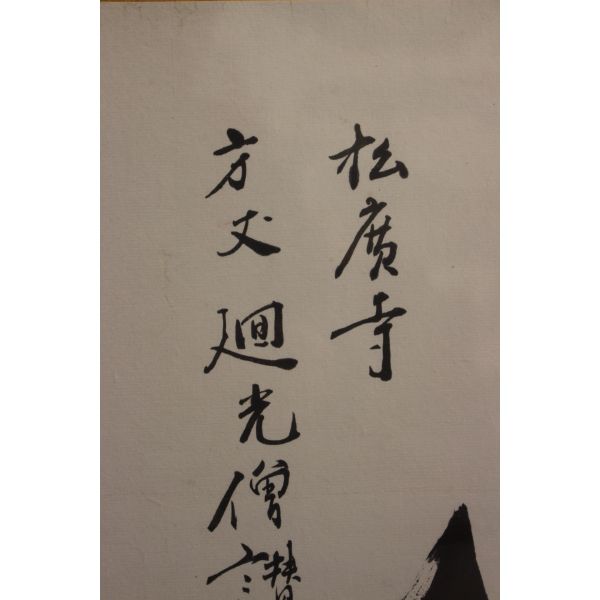 松廣寺
方丈廻光僧讃